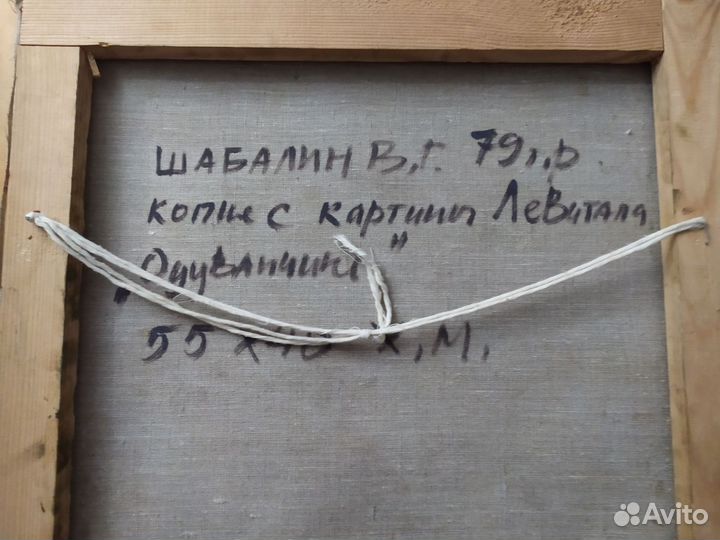 ШАБАЛИН В.Г. 79г.р.
копие с картины Левитана
„Одуванчики"
55 х 40 х.м.
Avito